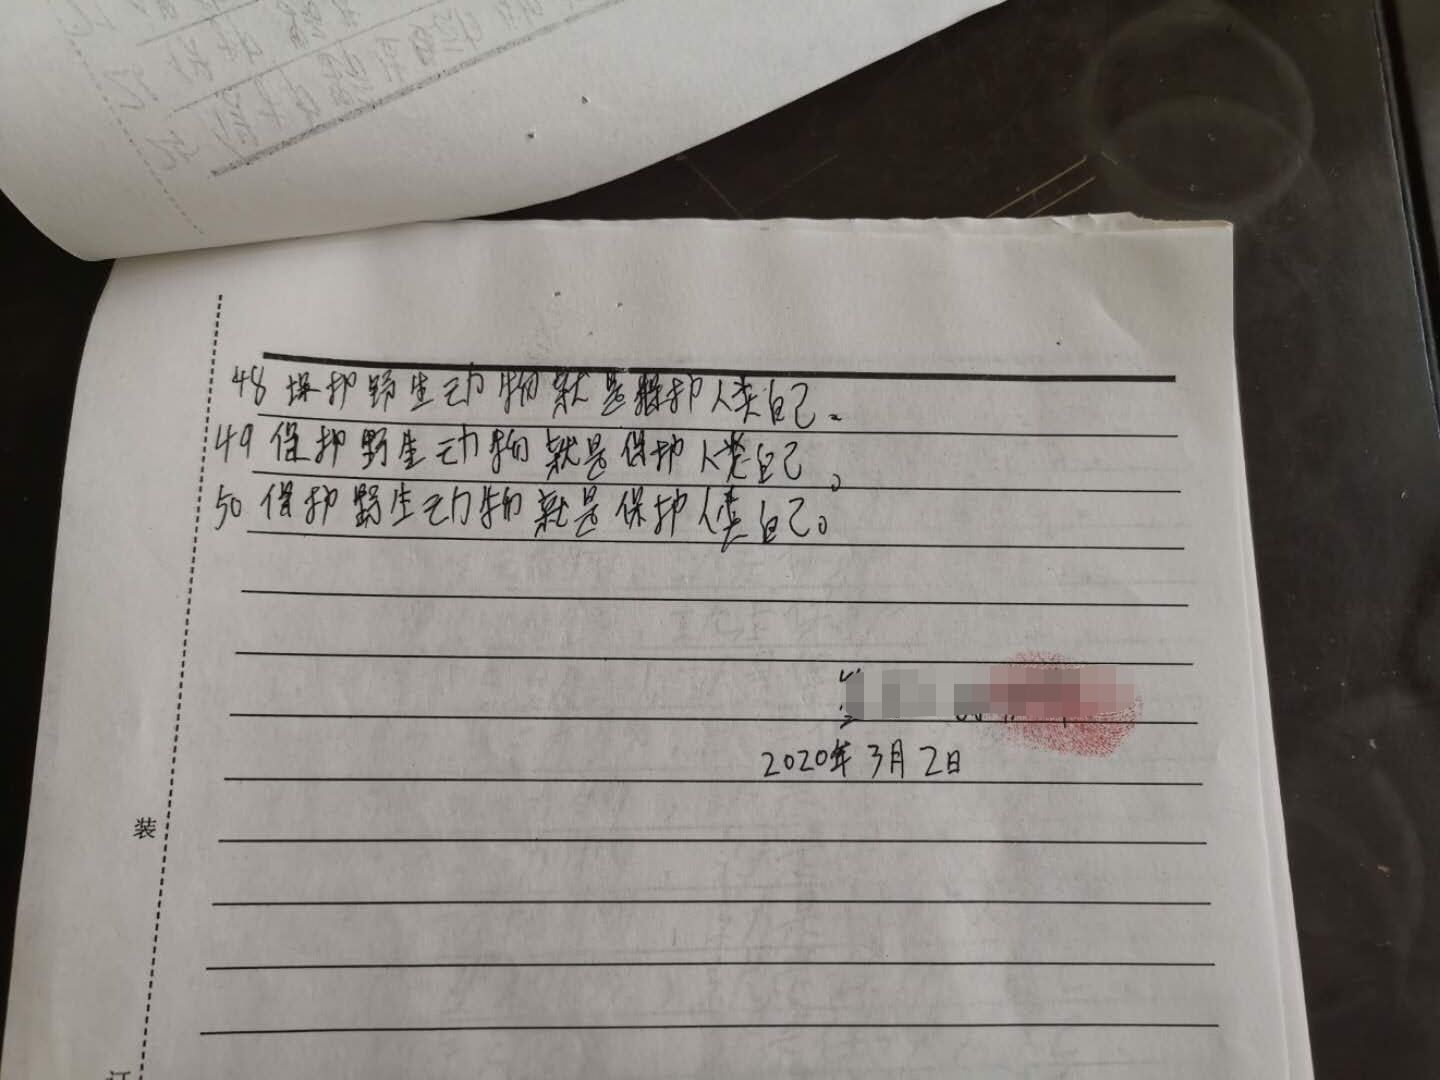 48 保护野生动物就是保护人类自己。
49 保护野生动物就是保护人类自己。
50 保护野生动物就是保护人类自己。
2020年3月2日
装
订